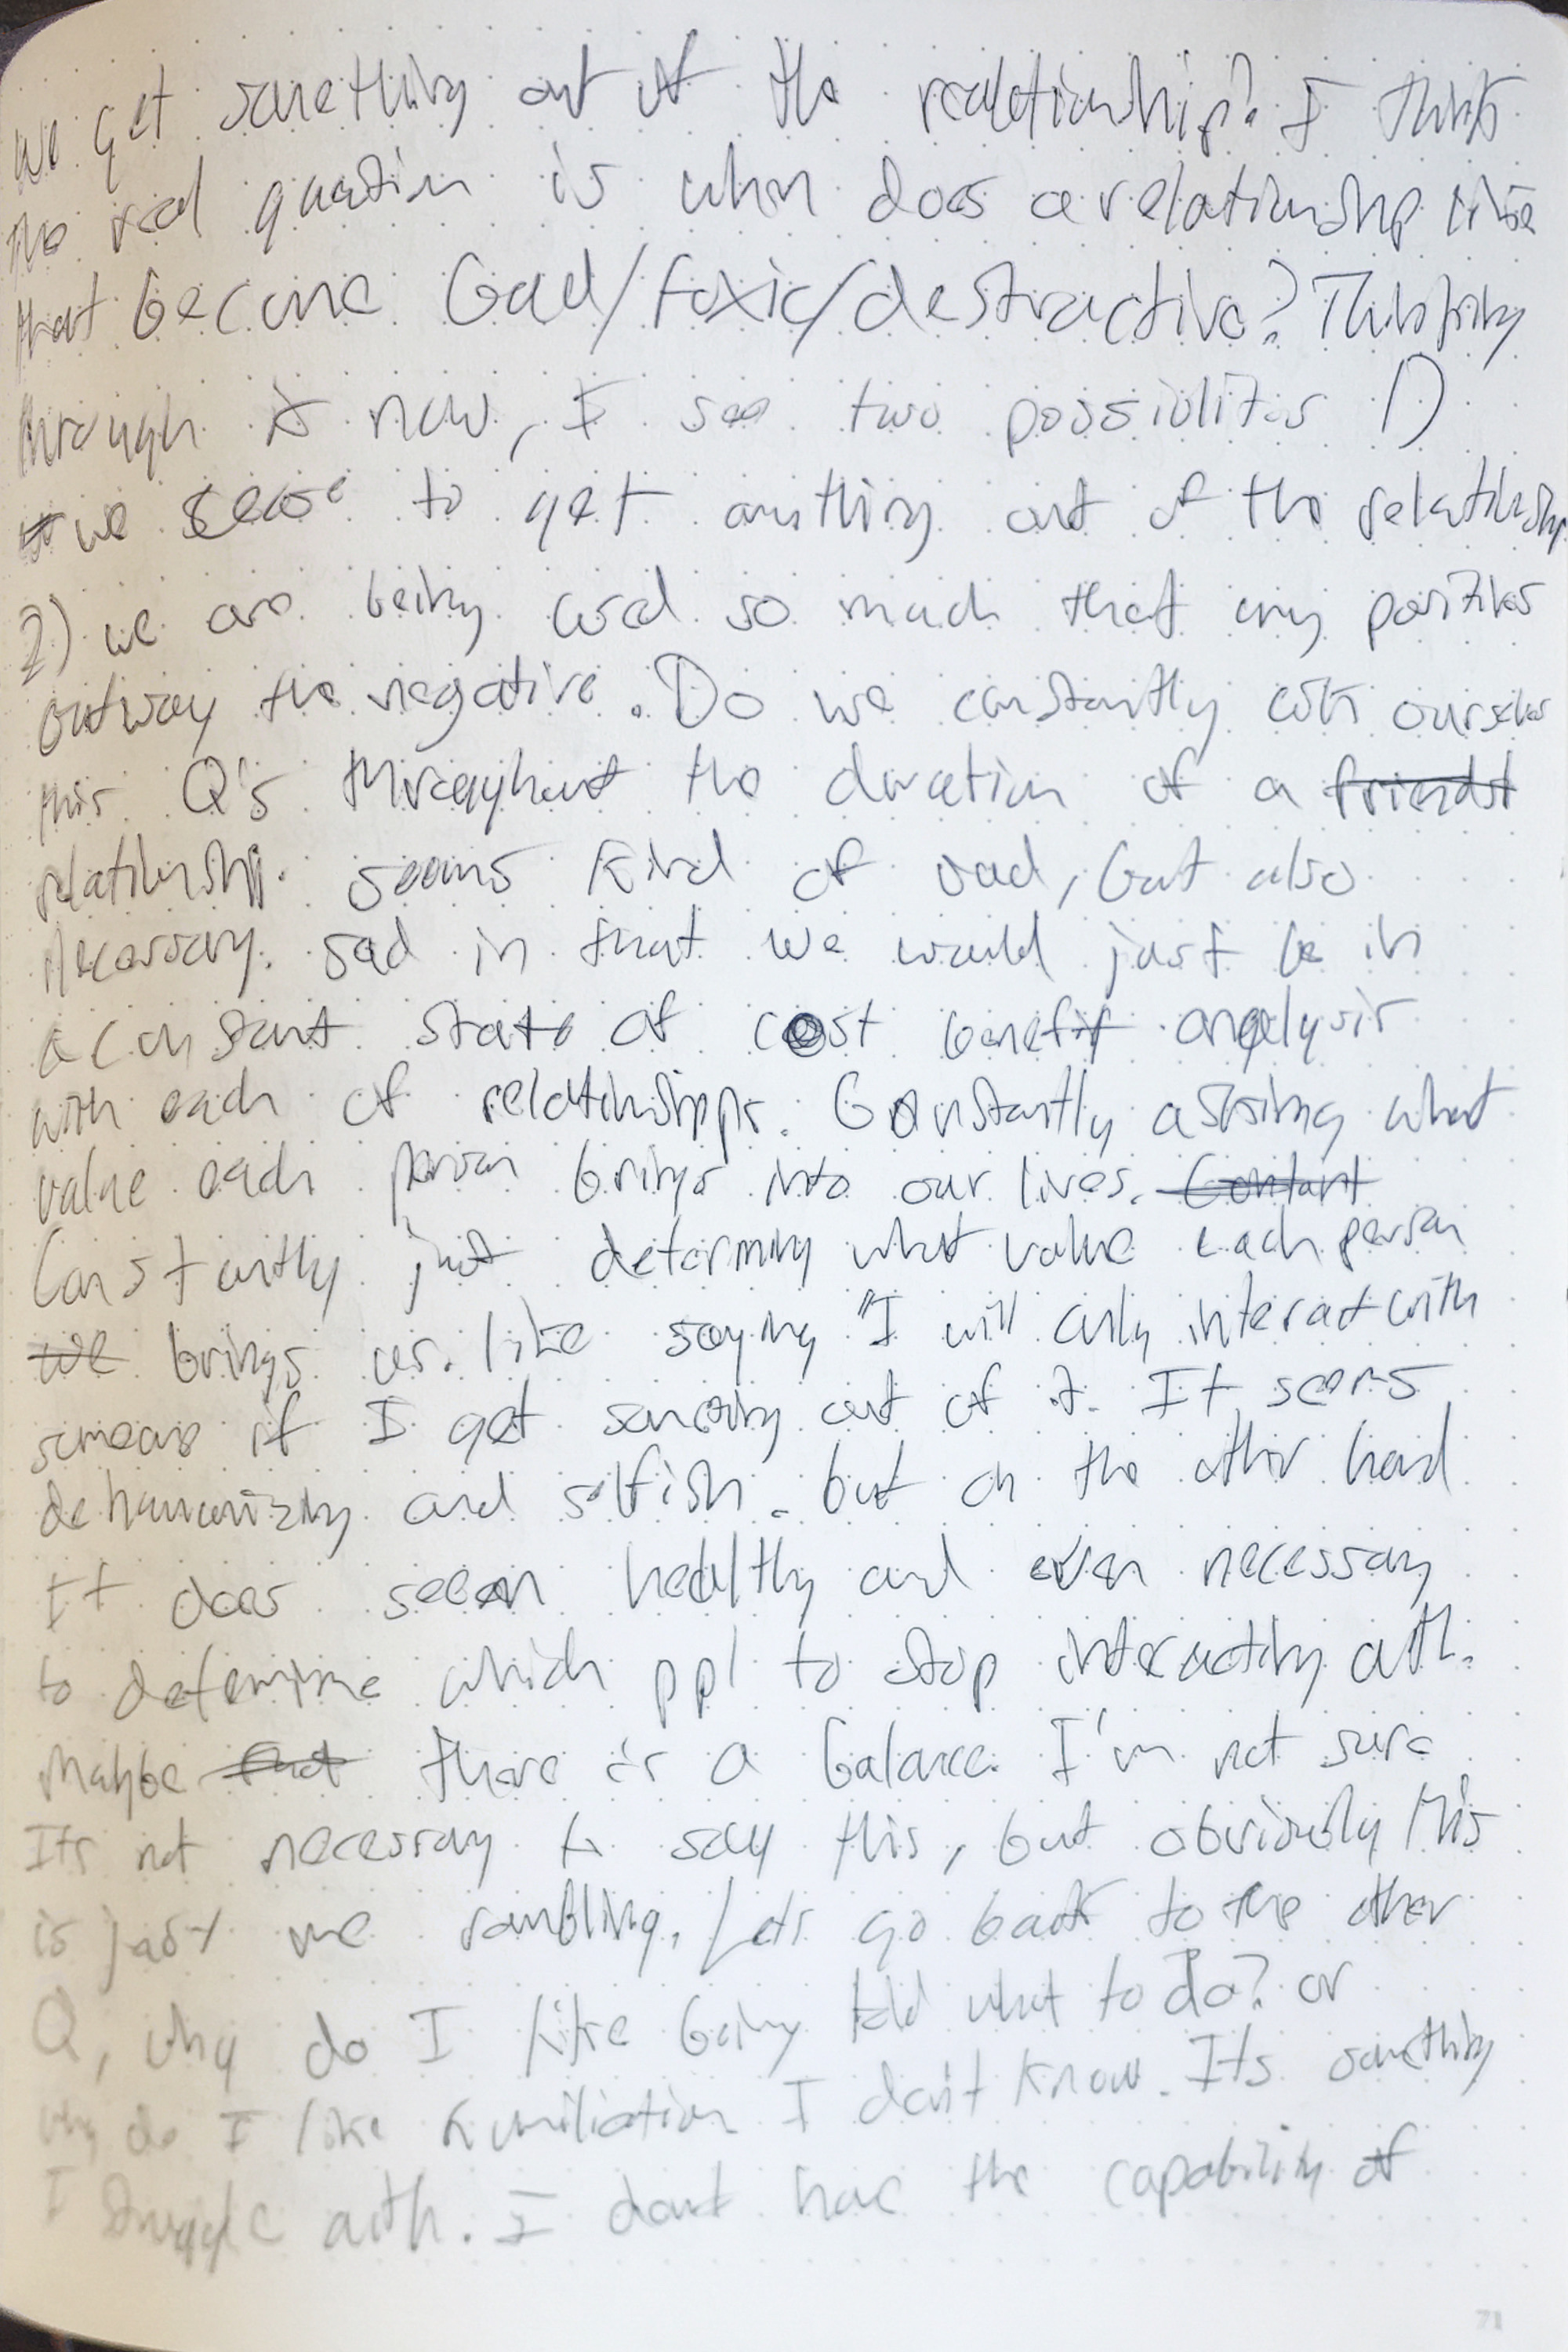 We get something out of the realationship? I think
the real question is when does a relationship like
that become bad/toxic/destructive? Thinking
through it now, I see two possiblities 1)
we cease to get anything out of the relationship
2) we are being used so much that any positives
outway the negative. Do we constantly ask ourselves
this Q's throughout the duration of a friendst
relationship. seems kind of sad, but also
necessary. sad in that we would just be in
a constant state of cost benefit analysis
with each of relationships. Constantly asking what
value each person brings into our lives. Contant
Constantly just determing what value each person
we brings us. like saying "I will only interact with
someone if I get something out of it. It seems
dehumanizing and selfish. but on the other hand
It does seem healthy and even necessary
to determine which ppl to stop interacting with.
Maybe that there is a balance. I'm not sure
Its not necessary to say this, but obviously this
is just me rambling. Lets go back to the other
Q, why do I like being told what to do? or
why do I like humiliation I don't know. Its something
I struggle with. I dont have the capability of
71